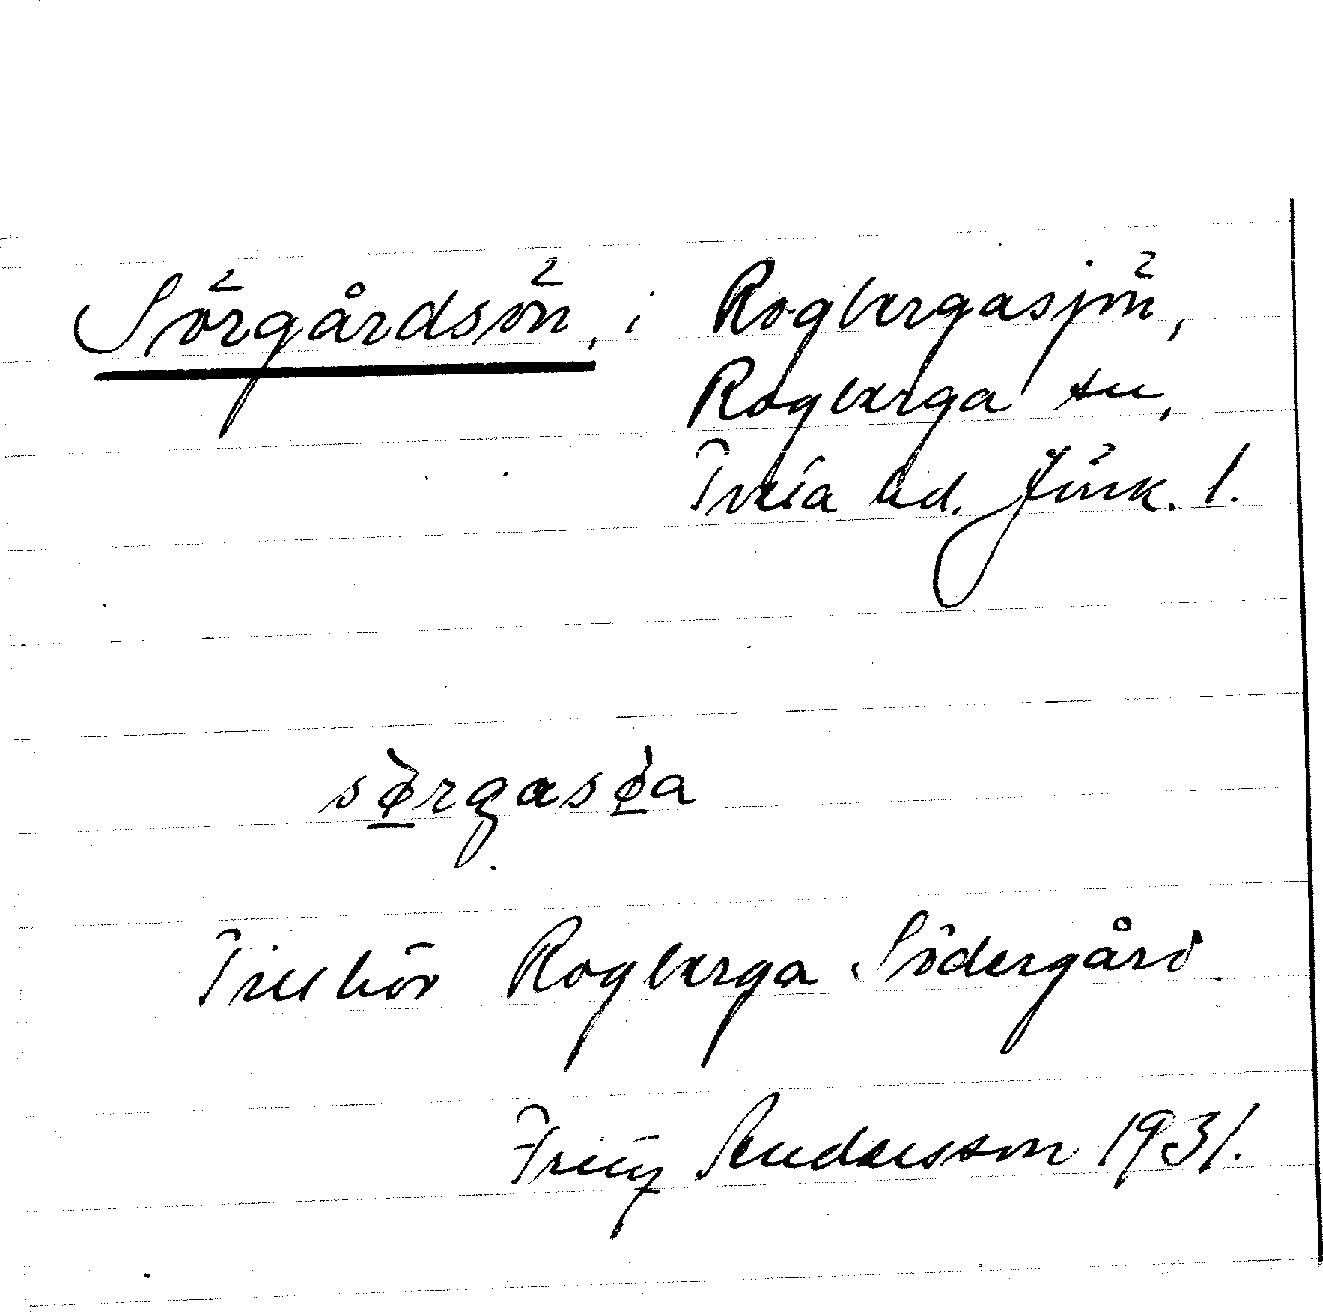 Sörgårdsön, i Rogbergasjön,
Rogberga sn,
Tveta hd. Jönk. l.
sø̀rgasø̀a
Tillhör Rogberga Södergård.
Fritz Andersson 1931.